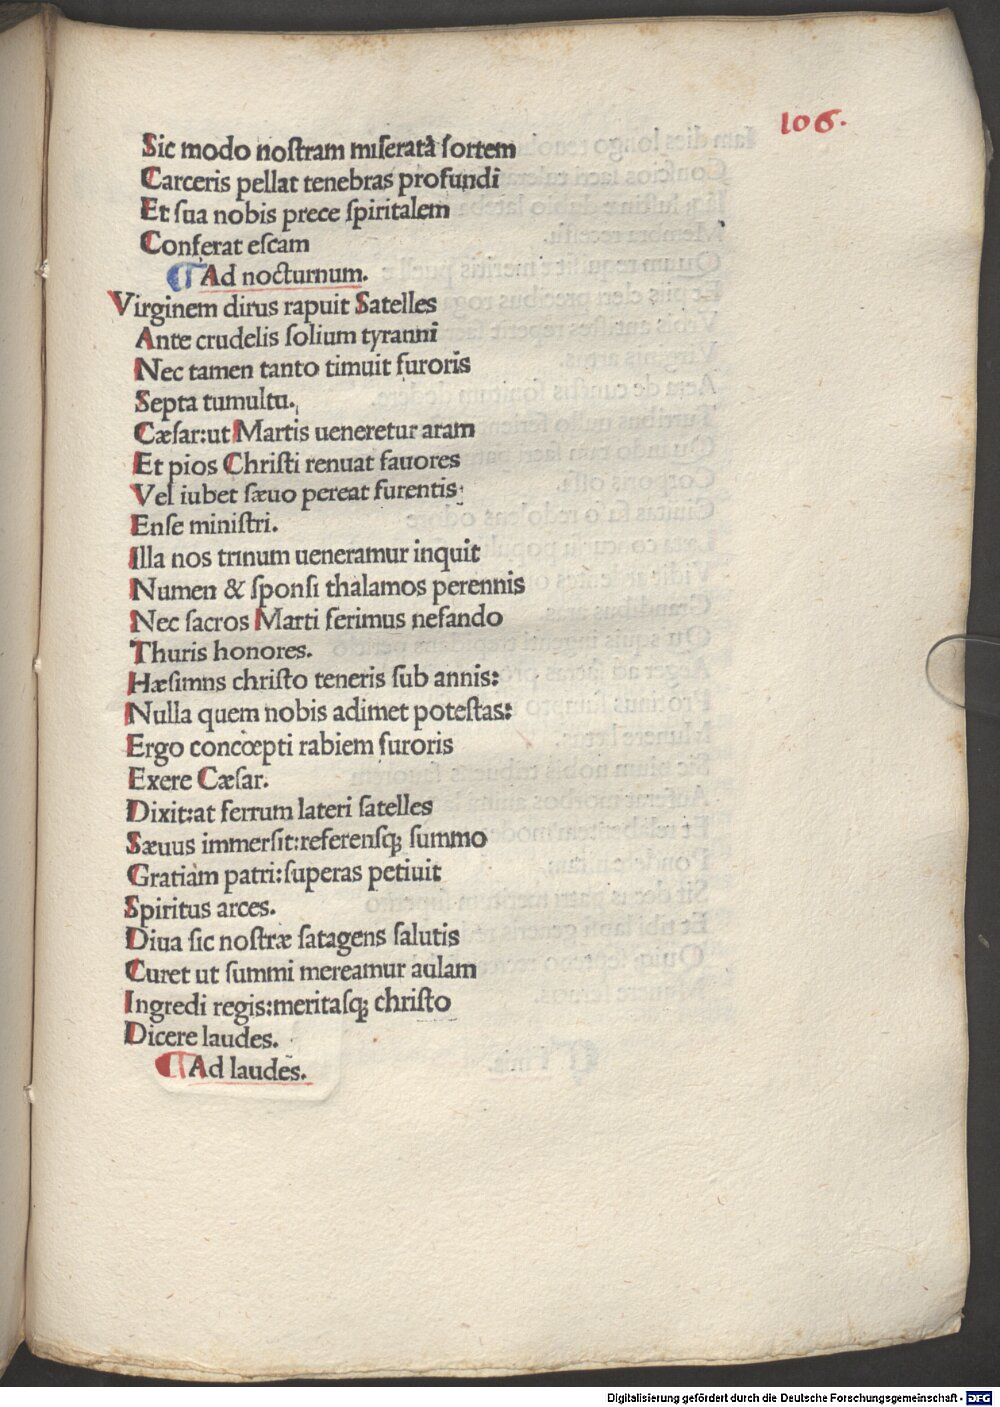 106.
Sic modo noſtram miſerata ſortem
Carceris pellat tenebras profundi
Et ſua nobis prece ſpiritalem
Conferat eſcam
¶ Ad nocturnum.
Virginem dirus rapuit Satelles
Ante crudelis ſolium tyranni
Nec tamen tanto timuit furoris
Septa tumultu.
Cæſar:ut Martis ueneretur aram
Et pios Chriſti renuat fauores
Vel iubet ſæuo pereat furentis
Enſe miniſtri.
Illa nos trinum ueneramur inquit
Numen & ſponſi thalamos perennis
Nec ſacros Marti ferimus nefando
Thuris honores.
Hæſimns chriſto teneris ſub annis:
Nulla quem nobis adimet poteſtas:
Ergo concœpti rabiem furoris
Exere Cæſar.
Dixit:at ferrum lateri ſatelles
Sæuus immerſit:referenſq; ſummo
Gratiam patri:ſuperas petiuit
Spiritus arces.
Diua ſic noſtræ ſatagens ſalutis
Curet ut ſummi mereamur aulam
Ingredi regis:meritaſq; chriſto
Dicere laudes.
¶ Ad laudes.
Digitalisierung gefördert durch die Deutsche Forschungsgemeinschaft - DFG